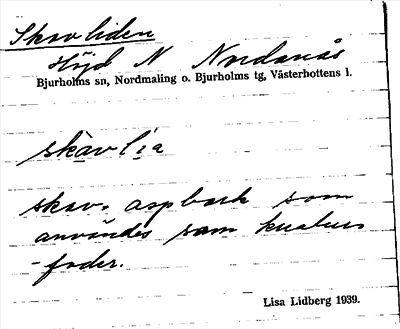 Skavliden
Höjd N Nordanås
Bjurholms sn, Nordmaling o. Bjurholms tg, Västerbottens l.
skavlia
skav, aspbark som
användes som kreaturs
-foder.
Lisa Lidberg 1939.